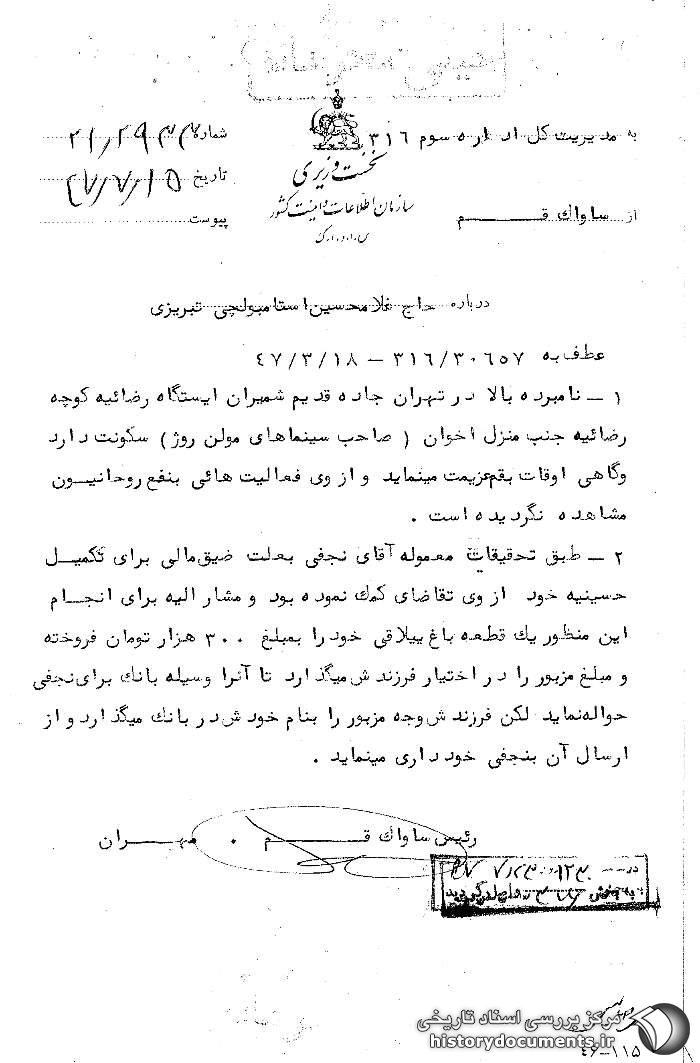 به مدیریت کل اداره سوم ۳۱۶
شماره
تاریخ ۴۷/۷/۱۵
پیوست
از ساواك قم
نخست وزیری
سازمان اطلاعات و امنیت کشور
س.ا.و.ا.ك
درباره حاج غلامحسین استامبولچی تبریزی
عطف به ۳۱۶/۳۰۶۵۷ – ۴۷/۳/۱۸
۱ – نامبرده بالا در تهران جاده قدیم شمیران ایستگاه رضائیه کوچه
رضائیه جنب منزل اخوان ( صاحب سینماهای مولن روژ) سکونت دارد
وگاهی اوقات بقم عزیمت مینماید و از وی فعالیت هائی بنفع روحانیون
مشاهده نگردیده است .
۲ – طبق تحقیقات معموله آقای نجفی بعلت ضیق مالی برای تکمیل
حسینیه خود از وی تقاضای کمك نموده بود و مشار الیه برای انجام
این منظور یك قطعه باغ ییلاقی خود را بمبلغ ۳۰۰ هزار تومان فروخته
و مبلغ مزبور را در اختیار فرزند ش میگذارد تا آنرا وسیله بانك برای نجفی
حواله نماید لکن فرزند ش وجه مزبور را بنام خود ش در بانك میگذارد و از
ارسال آن بنجفی خود داری مینماید .
رئیس ساواك قم . مهران
مرکز بررسی اسناد تاریخی
historydocuments.ir
۴۶-۱۱۵